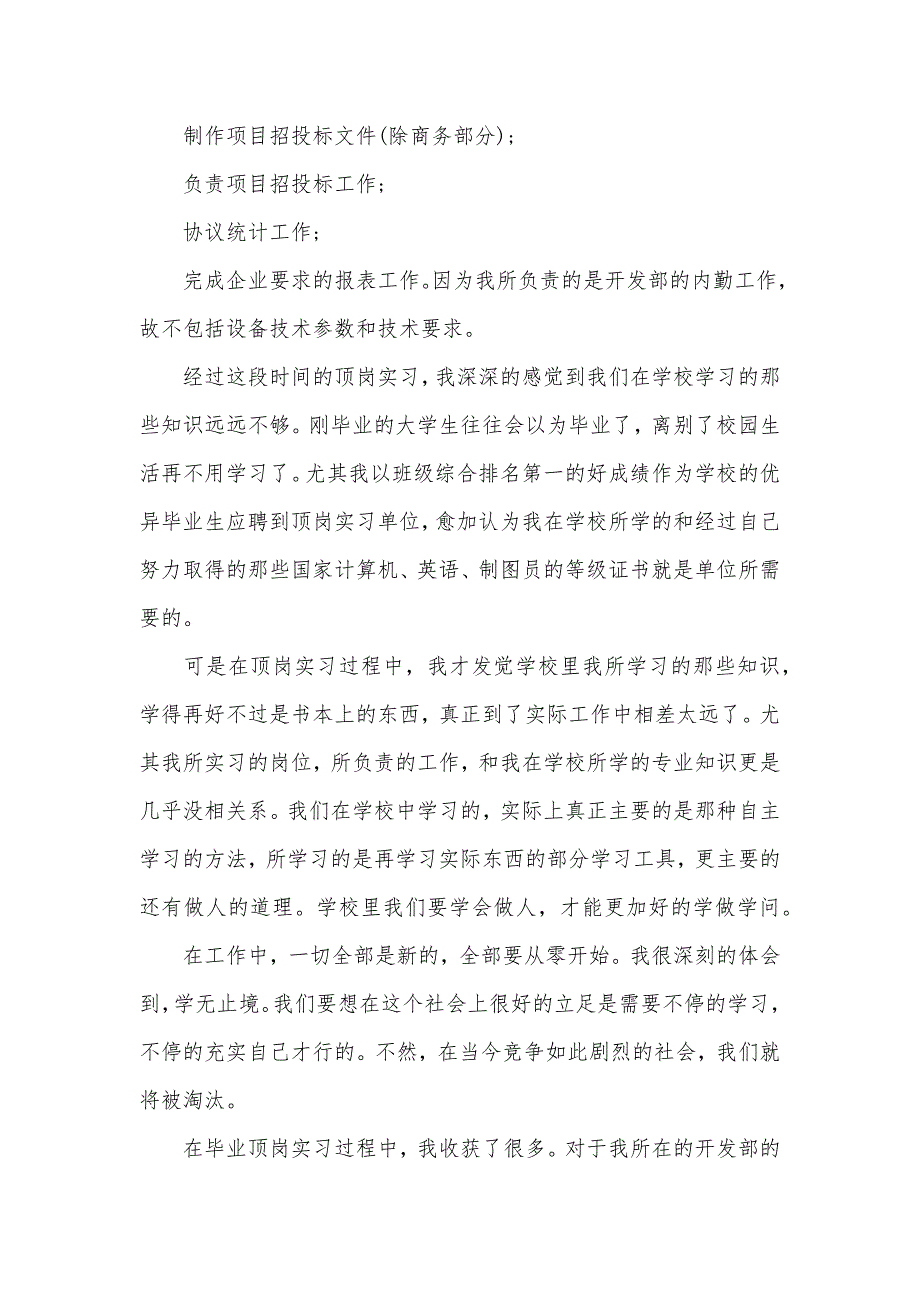 制作项目招投标文件(除商务部分);
负责项目招投标工作;
协议统计工作;
完成企业要求的报表工作。因为我所负责的是开发部的内勤工作，
故不包括设备技术参数和技术要求。
经过这段时间的顶岗实习，我深深的感觉到我们在学校学习的那
些知识远远不够。刚毕业的大学生往往会以为毕业了，离别了校园生
活再不用学习了。尤其我以班级综合排名第一的好成绩作为学校的优
异毕业生应聘到顶岗实习单位，愈加认为我在学校所学的和经过自己
努力取得的那些国家计算机、英语、制图员的等级证书就是单位所需
要的。
可是在顶岗实习过程中，我才发觉学校里我所学习的那些知识，
学得再好不过是书本上的东西，真正到了实际工作中相差太远了。尤
其我所实习的岗位，所负责的工作，和我在学校所学的专业知识更是
几乎没相关系。我们在学校中学习的，实际上真正主要的是那种自主
学习的方法，所学习的是再学习实际东西的部分学习工具，更主要的
还有做人的道理。学校里我们要学会做人，才能更加好的学做学问。
在工作中，一切全部是新的，全部要从零开始。我很深刻的体会
到，学无止境。我们要想在这个社会上很好的立足是需要不停的学习，
不停的充实自己才行的。不然，在当今竞争如此剧烈的社会，我们就
将被淘汰。
在毕业顶岗实习过程中，我收获了很多。对于我所在的开发部的